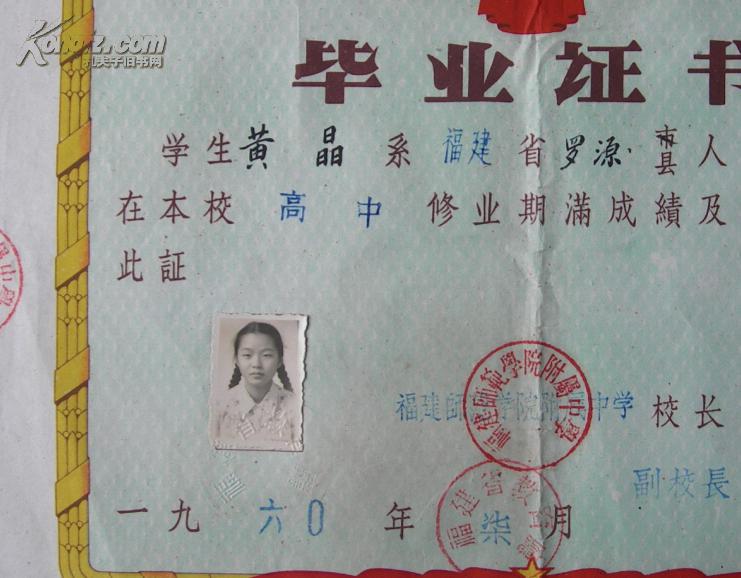 Kongfz.com
孔夫子旧书网
毕业证书
学生黄晶系福建省罗源市县人
在本校高中修业期滿成績及
此証
福建師范学院附属中学 校长
福建師範學院附屬中學
副校長
一九六0年柒月